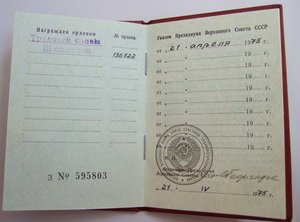 Награжден орденом
№ ордена
Трудовой славы
III степени
156522
З № 595803
Указом Президиума Верховного Совета СССР
от „21“ апреля 1975 г.
от „ “ 19 г.
от „ “ 19 г.
от „ “ 19 г.
от „ “ 19 г.
от „ “ 19 г.
от „ “ 19 г.
Секретарь Президиума
Верховного Совета СССР
„21“ IV 1975 г.